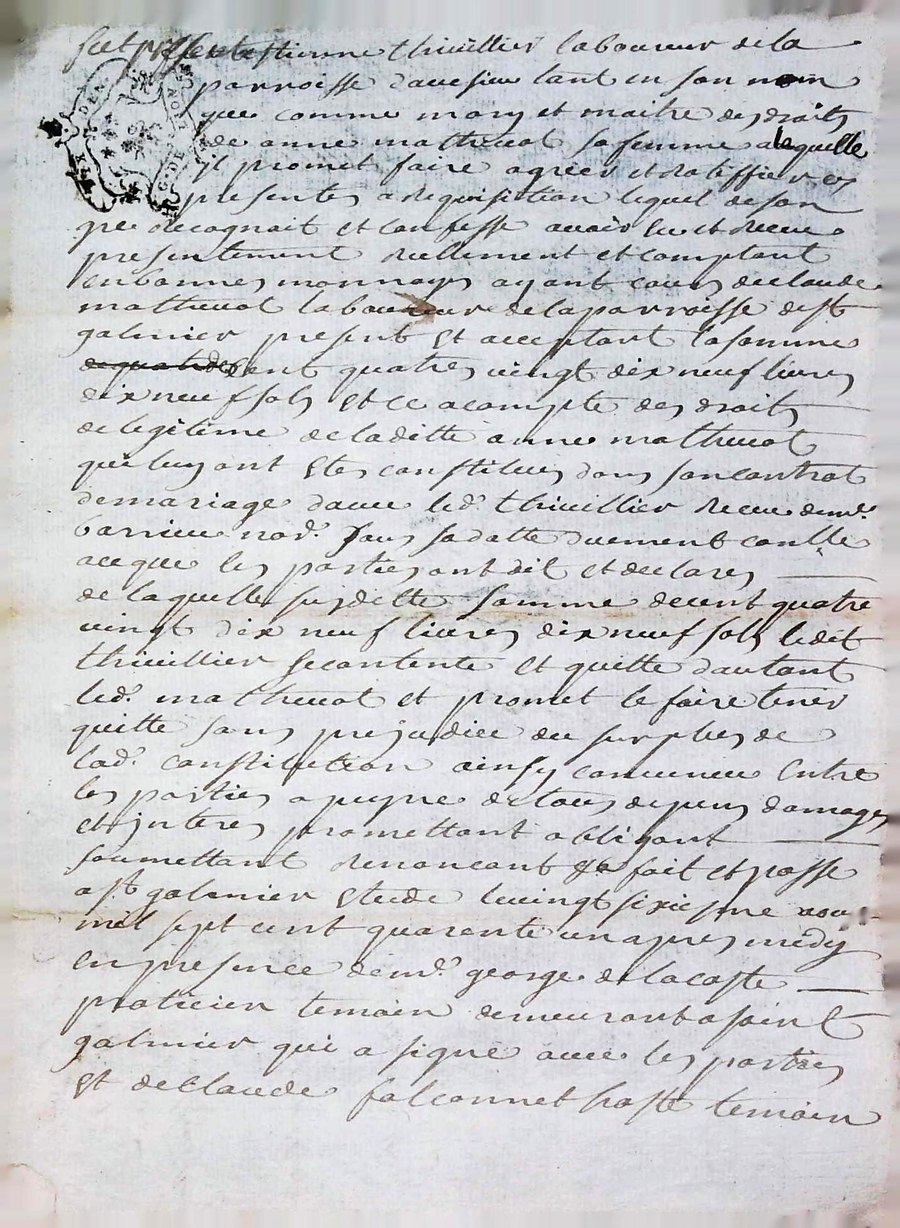 fut present estienne thiuillier laboureur de la
parroisse daveisieu tant en son nom
que comme mary et maitre des droits
de anne matheuot sa femme a laquelle
il promet faire agreer et ratiffier ces
presentes a requisition lequel de son
gre recognait et confesse avoir eu et receu
presentement reellement et comptant
en bonnes monnayes ayant cours de claude
matheuot laboureur de la parroisse de st
galmier present et acceptant la somme
cent quatres vingt dix neuf livres
dix neuf sols et ce a compte des droits
de legitime de laditte anne matheuot
qui luy ont etes constitues dans son contrat
de mariage dauec led. thiuillier receu de me.
barrieu nore. sous sa datte duement conllé
ace que les parties ont dit et declares
de laquelle susdette somme de cent quatre
vingt dix neuf livres dix neuf sols ledit
thiuillier se contente et quitte dautant
led. matheuot et promet le faire tenir
quitte sans prejudice du surplus de
lad. constitution ainsy convenu entre
les parties a peyne de tous depens domages
et interes promettant obligeant
soumettant renoncant fait et passe
a st galmier etude le vingt sixiesme nou
mil sept cent quarente un apres medy
en presence de me. george de lacoste
praticien temoin demeurant a saint
galmier qui a signe avec les parties
et de claude falconnet hoste temoin
G. DE